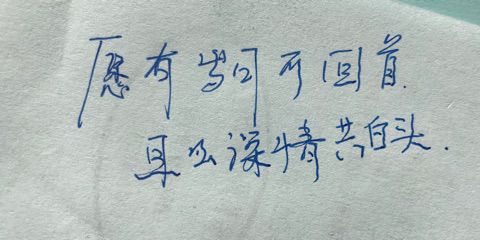 愿有岁月可回首
且以深情共白头.